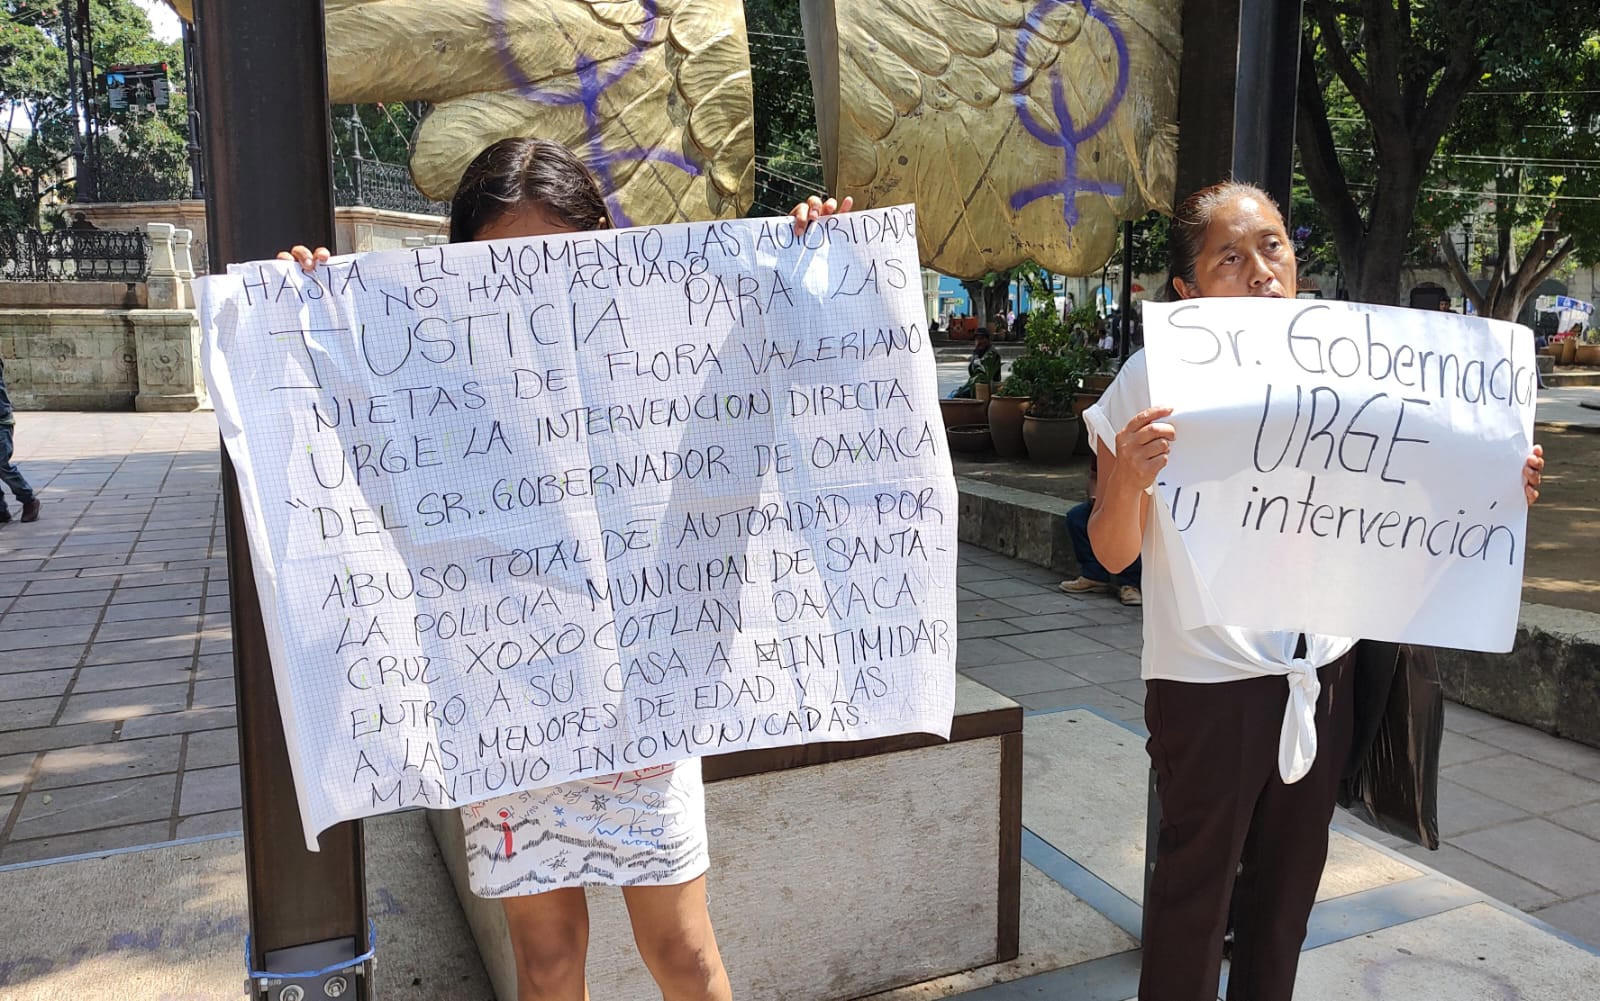 HASTA EL MOMENTO LAS AUTORIDADES
NO HAN ACTUADO
JUSTICIA PARA LAS
NIETAS DE FLORA VALERIANO
URGE LA INTERVENCION DIRECTA
"DEL SR. GOBERNADOR DE OAXACA
ABUSO TOTAL DE AUTORIDAD POR
LA POLICIA MUNICIPAL DE SANTA-
CRUZ XOXOCOTLAN OAXACA
ENTRO A SU CASA A INTIMIDAR
A LAS MENORES DE EDAD Y LAS
MANTUVO INCOMUNICADAS.
Sr. Gobernador
URGE
su intervención
WHO